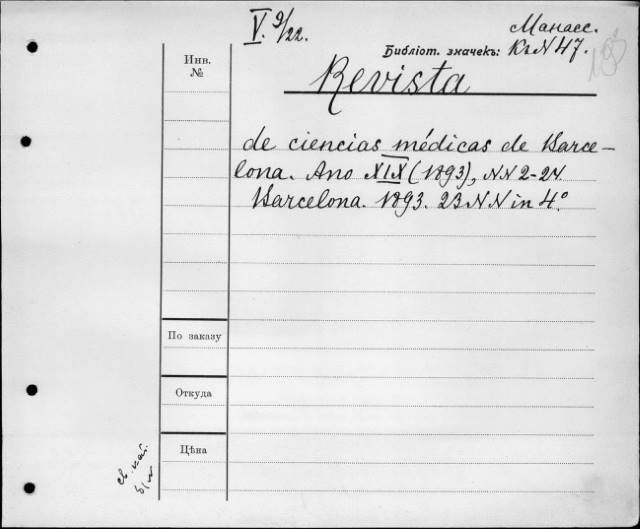 V. 9/22.
Манасс.
Инв.
№
Библіот. значекъ: Къ N 47.
Revista
de ciencias médicas de Barce-
lona. Ano XIX (1893), NN 2-24.
Barcelona. 1893. 23 NN in 4.°
По заказу
Откуда
Цѣна
св. кат.